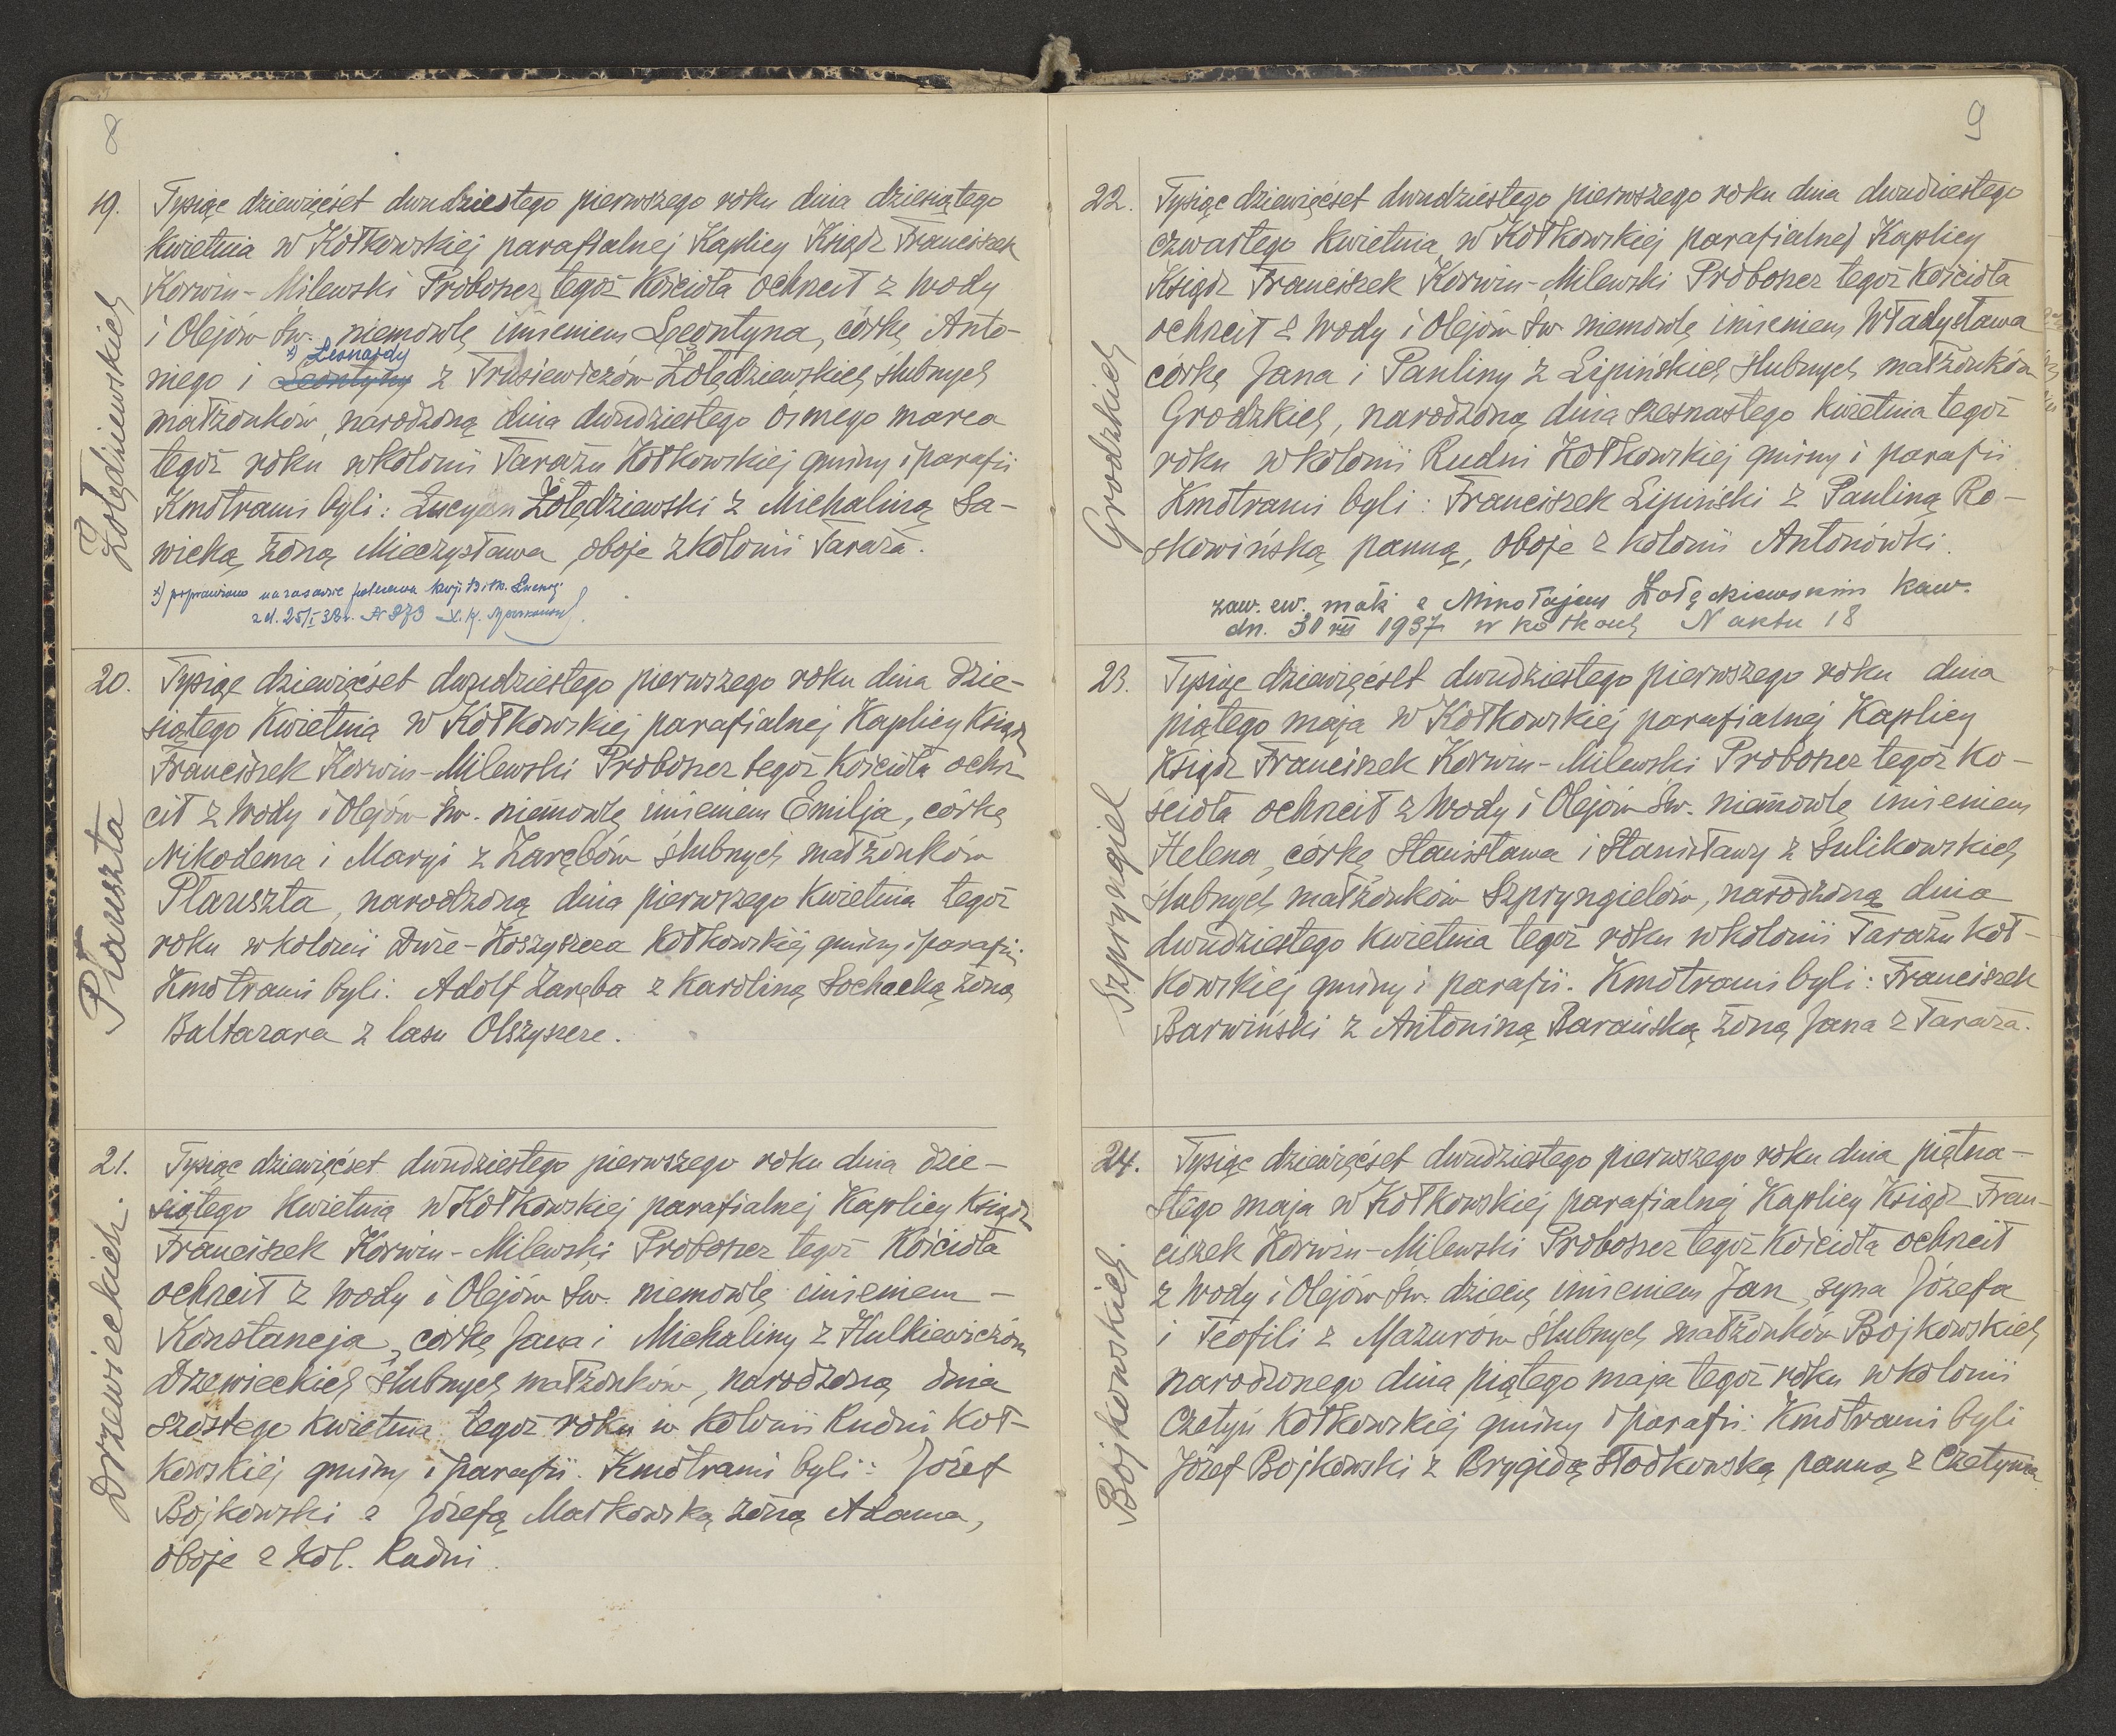 8
19.
Żołędziewskich
Tysiąc dziewięćset dwudziestego pierwszego roku dnia dziesiątego
kwietnia w Kołkowskiej parafialnej Kaplicy Ksiądz Franciszek
Korwin-Milewski Proboszcz tegoż Kościoła ochrcił z wody
i Olejów Św. niemowlę imieniem Leontyna, córkę Anto-
x) Leonardy
niego i Leontyny z Trusiewiczów Żołędziewskich ślubnych
małżonków, narodzoną dnia dwudziestego ósmego marca
tegoż roku w kolonii Tarażu Kołkowskiej gminy i parafii
Kmotrami byli: Lucyan Żołędziewski z Michaliną Sa-
wicką żoną Mieczysława, oboje z kolonii Taraża.
x) poprawiono na zasadzie polecenia Kurji Bisk. Łuckiej
z d. 25/I 38 r. N 873
20.
Płauszta
Tysiąc dziewięćset dwudziestego pierwszego roku dnia dzie-
siątego Kwietnia w Kołkowskiej parafialnej Kaplicy Ksiądz
Franciszek Korwin-Milewski Proboszcz tegoż Kościoła ochr
cił z wody i Olejów Św. niemowlę imieniem Emilja, córkę
Nikodema i Maryi z Zarębów ślubnych małżonków
Płauszta, narodzoną dnia pierwszego Kwietnia tegoż
roku w kolonii Duże-Koszyszcza Kołkowskiej gminy i parafii.
Kmotrami byli: Adolf Zaręba z Karoliną Sochacką żoną
Baltazara z lasu Olszyszcze.
21.
Drzewieckich.
Tysiąc dziewięćset dwudziestego pierwszego roku dnia dzie-
siątego kwietnia w Kołkowskiej parafialnej Kaplicy Ksiądz
Franciszek Korwin-Milewski Proboszcz tegoż Kościoła
ochrcił z wody i Olejów Św. niemowlę imieniem -
Konstancja, córkę Jana i Michaliny z Hulkiewiczów
Drzewieckich ślubnych małżonków, narodzoną dnia
szóstego kwietnia tegoż roku w Kolonii Rudni Koł-
kowskiej gminy i parafii. Kmotrami byli: Józef
Bojkowski z Józefą Małkowską żoną Adama,
oboje z Kol. Rudni.
9
22.
Grodzkich
Tysiąc dziewięćset dwudziestego pierwszego roku dnia dwudziestego
czwartego Kwietnia w Kołkowskiej parafialnej Kaplicy
Ksiądz Franciszek Korwin-Milewski Proboszcz tegoż Kościoła
ochrcił z wody i Olejów Św. niemowlę imieniem Władysława
córkę Jana i Pauliny z Lipińskich ślubnych małżonków
Grodzkich, narodzoną dnia szesnastego kwietnia tegoż
roku w kolonii Rudni Kołkowskiej gminy i parafii
Kmotrami byli: Franciszek Lipiński z Pauliną Ro-
skowińską panną, oboje z kolonii Antonówki.
zaw. zw. małż z Mikołajem Żołędziewskim kaw.
dn. 31 VIII 1937 w Kołkach N aktu 18
23.
Szpryngiel
Tysiąc dziewięćset dwudziestego pierwszego roku dnia
piątego maja w Kołkowskiej parafialnej Kaplicy
Ksiądz Franciszek Korwin-Milewski Proboszcz tegoż Ko-
ścioła ochrcił z wody i Olejów Św. niemowlę imieniem
Helena, córkę Stanisława i Stanisławy z Sulikowskich
ślubnych małżonków Szpryngielów, narodzoną dnia
dwudziestego kwietnia tegoż roku w kolonii Tarażu Koł-
kowskiej gminy i parafii. Kmotrami byli: Franciszek
Barwiński z Antoniną Barańską żoną Jana z Taraża.
24.
Bojkowskich.
Tysiąc dziewięćset dwudziestego pierwszego roku dnia piętna-
stego maja w Kołkowskiej parafialnej Kaplicy Ksiądz Fran-
ciszek Korwin-Milewski Proboszcz tegoż Kościoła ochrcił
z wody i Olejów Św. dziecię imieniem Jan, syna Józefa
i Teofili z Mazurów ślubnych małżonków Bojkowskich
narodzonego dnia piątego maja tegoż roku w kolonii
Czetyń Kołkowskiej gminy i parafii. Kmotrami byli
Józef Bojkowski z Brygidą Słodkowską panną z Czetynia.